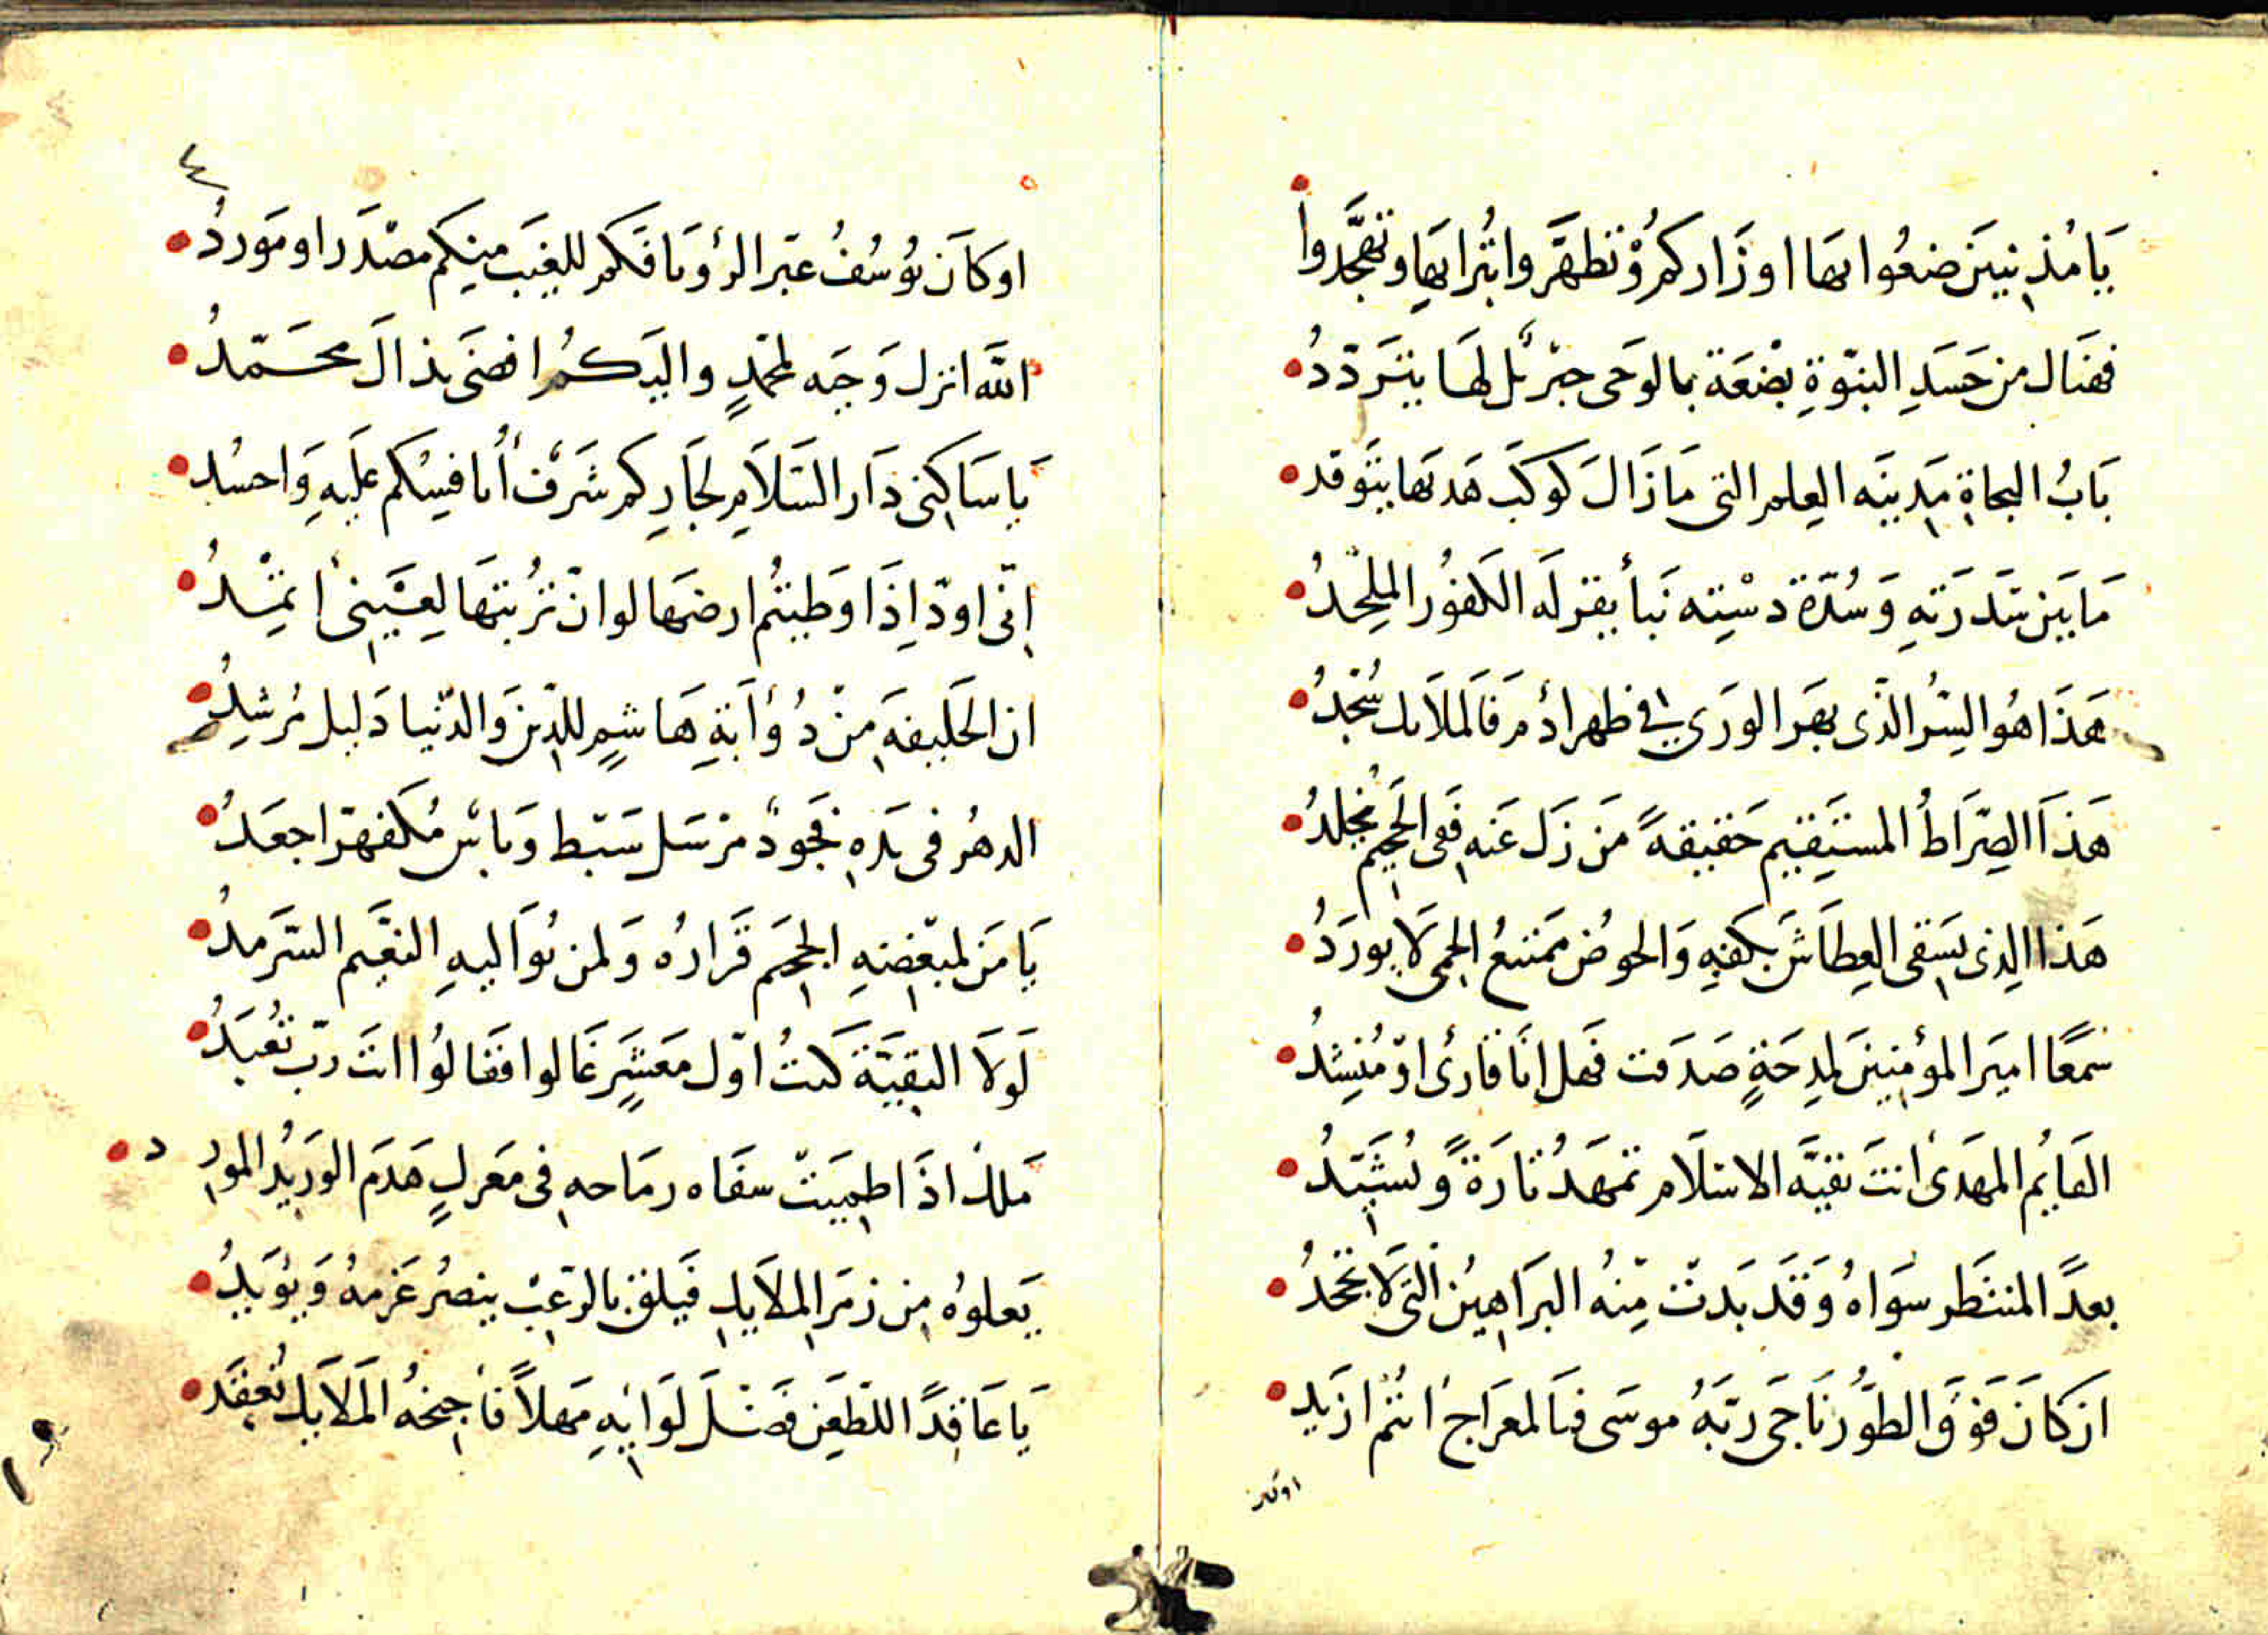 يَا مُذنبينَ ضعُوا بهَا اوزَاركمُ وْتطهَّروا بتُرابهَا وتهجَّدوا
فهنَال من حَسَدِ النبّوةِ بضْعَة بالوَحى جبْرئل لهَا يتَردّدُ
بَابُ النجاة مَدينَه العِلم التى مَا زَالَ كوكبَ هَديهَا يتَوقد
مَا بَين سَدرَتهِ وَسُدّة دسْتِه نَبأ يقرّ لَه الكفوُر الملحْدُ
هَذَا هُو السّرُ الذّى بهَر الورَى فى ظهر ادُم فَالملاَىك سُجّدُ
هَذَا الصِّرَاطُ المستَقيِم حَقيقهً مَن زَل عَنه ففَى الجَحيم يُخلدُ
هَذا الذِى يسَقى العِطَاشَ بكَفهِ وَالحوضُ ممَتنعُ الحِمى لَا يورَدُ
سَمعًا اميَر المؤمنِينَ لمِدحَةٍ صَدَقت فهَل انَا قارئ اوّ مُنشِدُ
القَايمُ المهَدىُ انتَ بقيَّه الاسلَام تمهَدُ تارَةً وتُشَيّدُ
بعدً المنتظَر سوَاهُ وَقَد بَدتْ مِنهُ البرَاهيِنُ التى لَا تجْحَدُ
ان كانَ فوَقَ الطوُّر نَاجَى ربّهُ موسَى فبَالمعرَاج انتُم ازيَد
اوكان
٤
او كاَن يوُسُفُ عبّر الرؤيَا فكم للغيَب منِكم مصْدَرا ومَوردُ
اللَّه انزل وَحيَه لمحمّدٍ واليَكمُ افضَى بذالَ محَمّدُ
يَا سَاكِنى دَار السَلاَمِ لجَارِكم شَرَفٌ أُنافِسُكم علَيهِ وَاحسُد
انّى اودّ اِذَا وَطيتُم ارضهَا لو انّ تُربتهَا لعِيَنىْ اثمِدُ
ان الخَليفهَ مِنْ ذُؤابَةِ هَاشمٍ للدّين وَالدّنيا دَليل مُرشِدُ
الدهُر فى يَدهِ فجَودٌ مرْسَل سَبْط وَباسٌ مُكفهرّا جعَدُ
يَا مَن لمبغِضِهِ الجحَيم قَرارُه وَلمن يوُاليهِ النعيَم السَرمدُ
لَولَا التقيَّة كنتُ اوّل مَعشَرٍ غَالوا فقَالوُا انتَ ربّ تُعبَدُ
مَلكُ اذَا ظمِيَتْ سقَاه رمَاحه فى مَعركٍ هَدَم الوَريُد المورد
يَعلوُه مِن زمَر المِلاَيك فَيلق بالرّعبْ ينصُر عَزمهُ وَيؤيَدُ
يَا عَاقدًا للطعَن فضَلَ لوَايهِ مَهلاً فأجنحهُ المَلاَيك تُعقَد